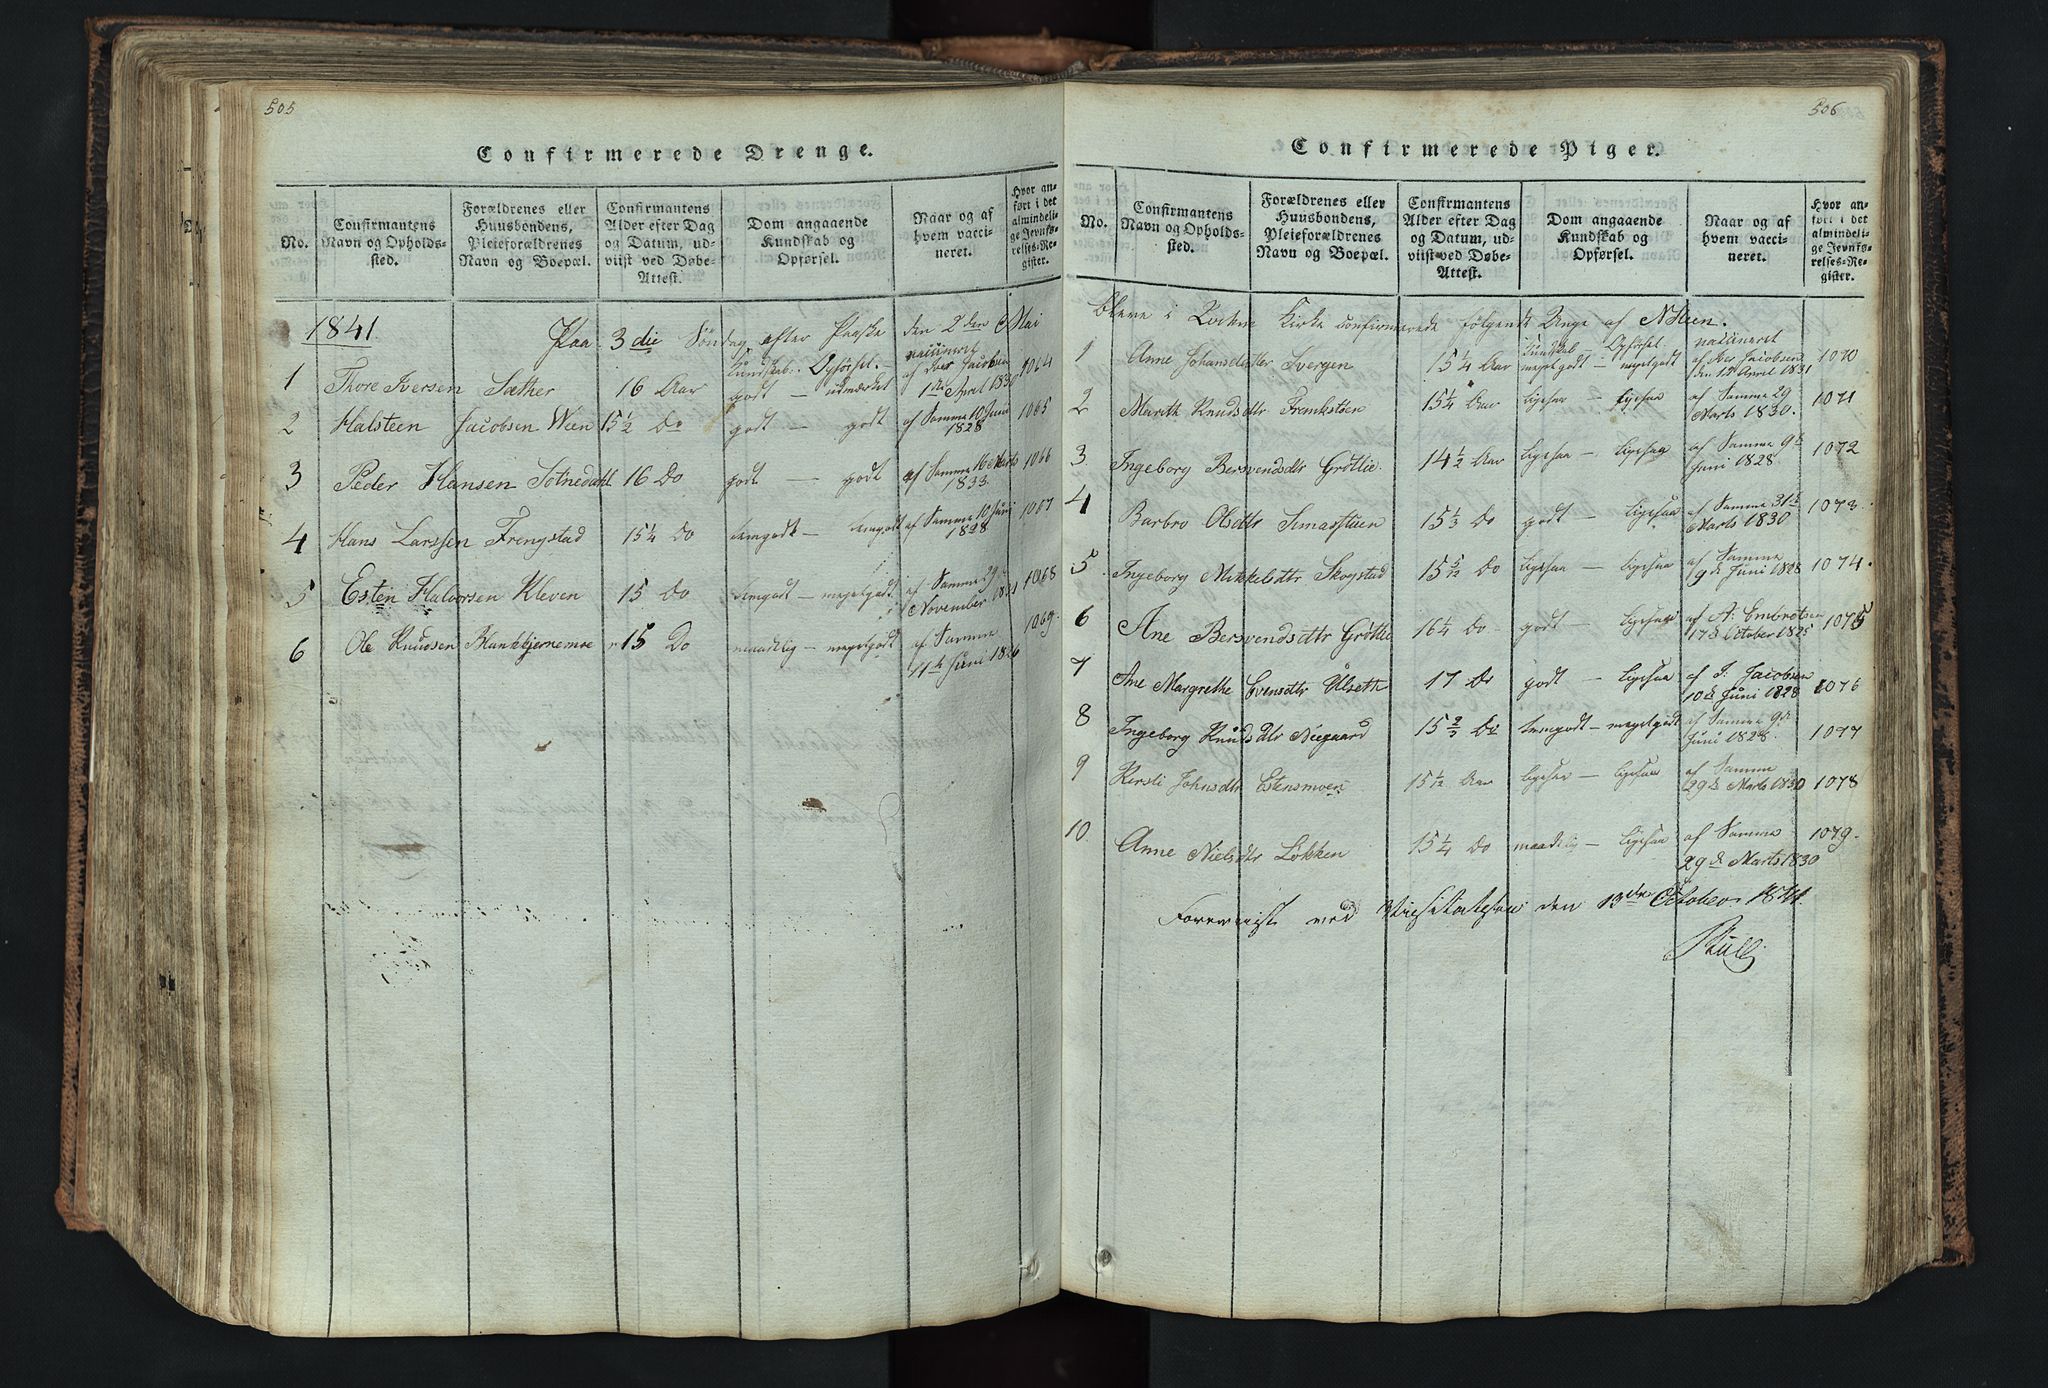 505
Confirmerede Drenge.
No.
Confirmantens Navn og Opholds-sted.
Forældrenes eller Huusbondens, Pleieforældrenes Navn og Boepæl.
Confirmantens Alder efter Dag og Datum, ud-viist ved Døbe-Attest.
Dom angaaende Kundskab og Opførsel.
Naar og af hvem vacci-neret.
Hvor an-ført i det almindeli-ge Jevnfø-relses-Re-gister.
1841 Paa 3die Søndag efter Paaske den 2den Mai
Kundskab. Opförsel. vaccineret
1 Thore Iversen Sæther 16 Aar godt — udmærket af Iver Jacobsen 1de April 1830 1064
2 Halsteen Jacobsen Wien 15½ Do godt — godt af Samme 10 Juni 1828 1065
3 Peder Hansen Sotnedahl 16 Do godt — godt af Samme 16 Marts 1833 1066
4 Hans Larssen Frengstad 15¼ Do temgodt — temgodt af Samme 10 Juni 1828 1067
5 Esten Halvorsen Kleven 15 Do temgodt — megetgodt af Samme 29 November 1831 1068
6 Ole Knudsen 15 Do maadlig — megetgodt af Samme 11te Juni 1826 1069.
506
Confirmerede Piger.
No.
Confirmantens Navn og Opholds-sted.
Forældrenes eller Huusbondens, Pleieforældrenes Navn og Boepæl.
Confirmantens Alder efter Dag og Datum, ud-viist ved Døbe-Attest.
Dom angaaende Kundskab og Opførsel.
Naar og af hvem vacci-neret.
Hvor an-ført i det almindeli-ge Jevnfø-relses-Re-gister.
bleve i Kirke confirmerede følgende Unge af
Kundskab — Opförsel vaccineret
1 Anne Johansdatter Svergen 15¼ Aar megetgodt — megetgodt af Iver Jacobsen den 12 April 1831 1070
2 Marith Knudsdtr 15¼ Aar ligesaa — ligesaa af Samme 29 Marts 1830. 1071
3 Ingeborg Bersvendsdtr Gröttie. 14½ Aar ligesaa — ligesaa af Samme 9de Juni 1828. 1072
4 Barbro Olsdtr 15⅓ Do godt — ligesaa af Samme 31te Marts 1830 1073.
5 Ingeborg Mikkelsdtr Skogstad 15 5/12 Do ligesaa — ligesaa af Samme 9de Juni 1828 1074.
6 Ane Bersvendsdtr Gröttie 16¼ Do godt — ligesaa af A: Embretsen 17de October 1825 1075
7 Ane Margrethe Evensdtr Ulseth 17 Do godt — ligesaa af I. Jacobsen 10de Juni 1828 1076
8 Ingeborg Knudsdtr 15⅔ Do temgodt — megetgodt af Samme 9de Juni 1828. 1077
9 Kersti Johnsdtr Estensmoen 15 1/12 Aar ligesaa — ligesaa af Samme 29de Marts 1830 1078
10 Anne Nielsdtr Løkken 15¼ Do maadlig — ligesaa af Samme 29de Marts 1830 1079.
Foreviist ved Visitatsen den 13de October 1841.